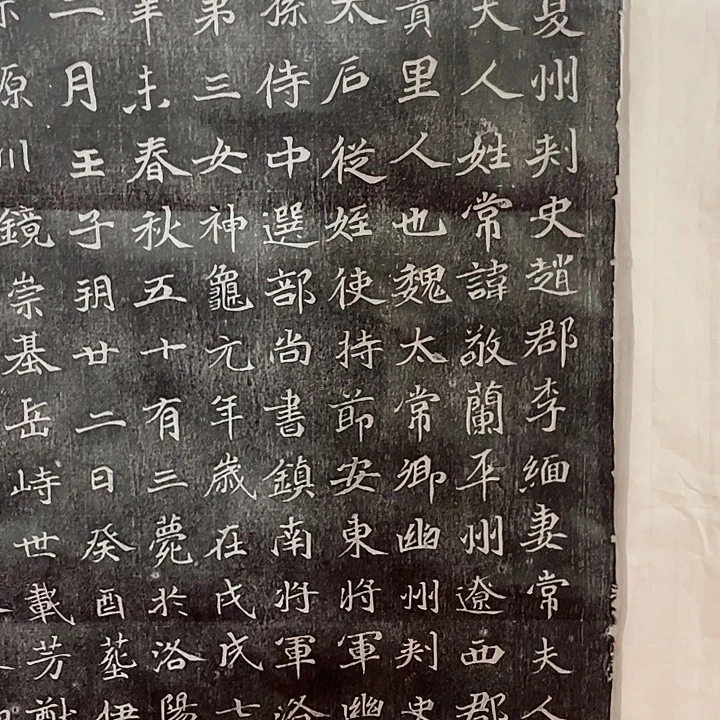 夏州刺史趙郡李緬妻常夫人
夫人姓常諱敬蘭平州遼西郡
貴里人也魏太常卿幽州刺史
太后從姪使持節安東將軍幽
孫侍中選部尚書鎮南將軍洛
第三女神龜元年歲在戊戌七
辛未春秋五十有三薨於洛陽
二月壬子朔廿二日癸酉塟伊
原川鏡崇基岳峙世載芳猷